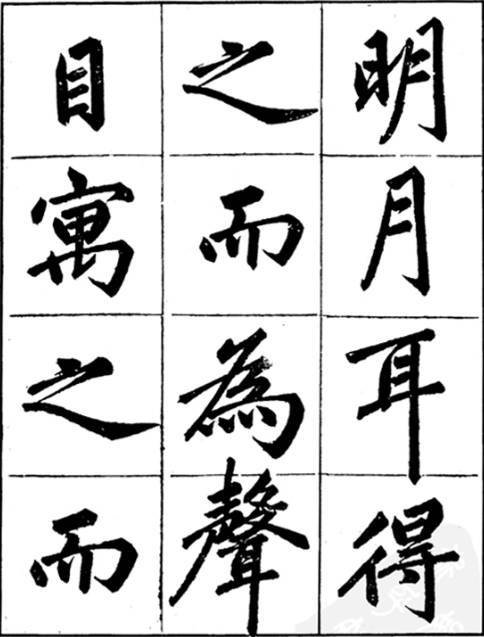 明月耳得
之而為聲
目寓之而